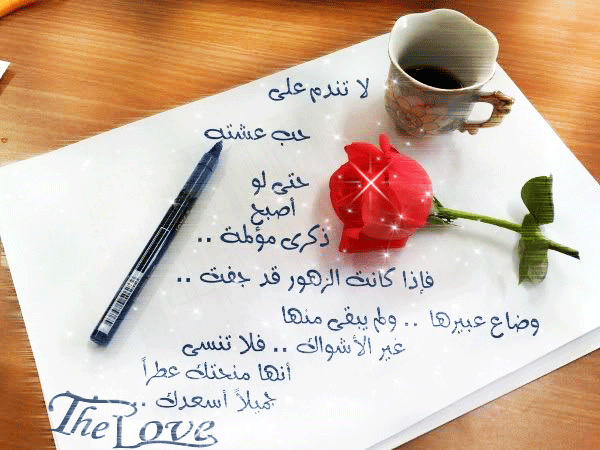 لا تندم على
حب عشته
حتى لو
أصبح
ذكرى مؤلمة ..
فإذا كانت الزهور قد جفت ..
وضاع عبيرها .. ولم يبقى منها
غير الأشواك .. فلا تنسى
أنها منحتك عطراً
جميلاً أسعدك ..
The Love